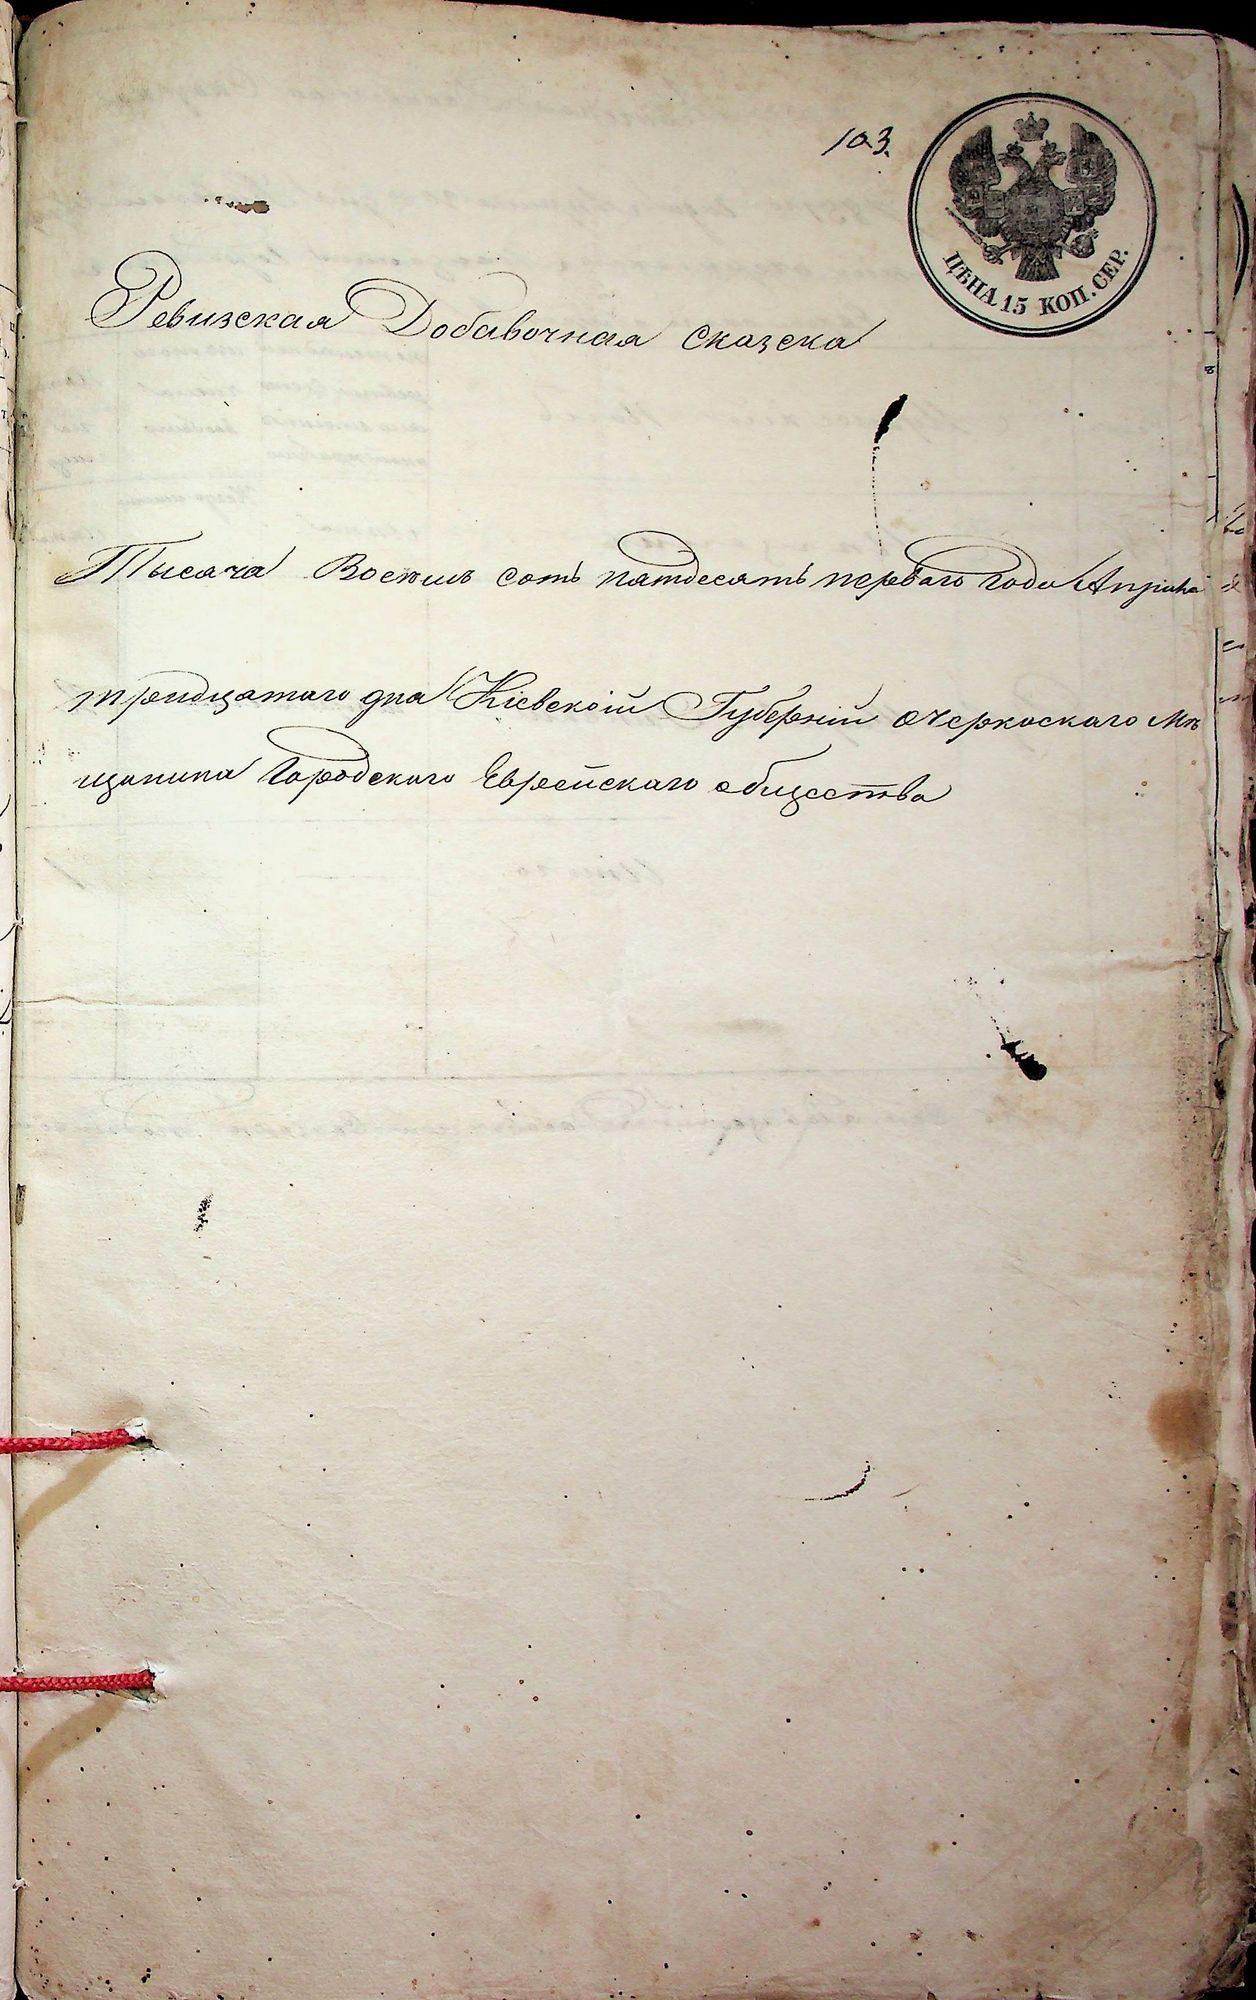 103.
ЦѢНА 15 КОП. СЕР.
Ревизская Добавочная сказска
Тысяча Восемь сотъ пятдесятъ первого года Апреля
тридцатого дня Кіевской Губерніи Очеркаского мѣ
щанина Городского Еврейскаго общества